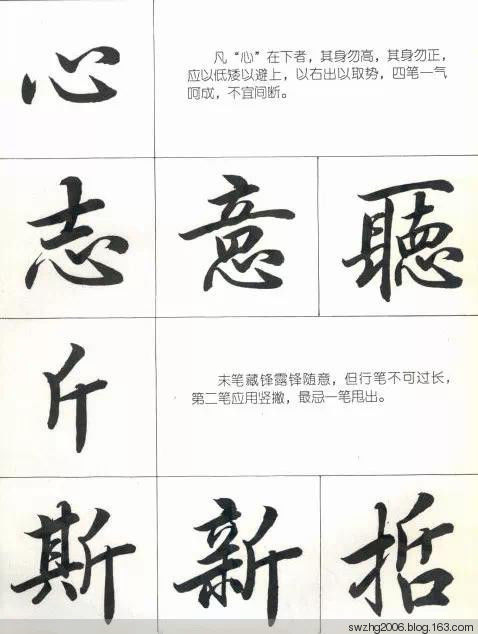 心
凡“心”在下者，其身勿高，其身勿正，
应以低矮以避上，以右出以取势，四笔一气
呵成，不宜间断。
志 意 聽
斤
末笔藏锋露锋随意，但行笔不可过长，
第二笔应用竖撇，最忌一笔甩出。
斯 新 哲
swzhg2006.blog.163.com